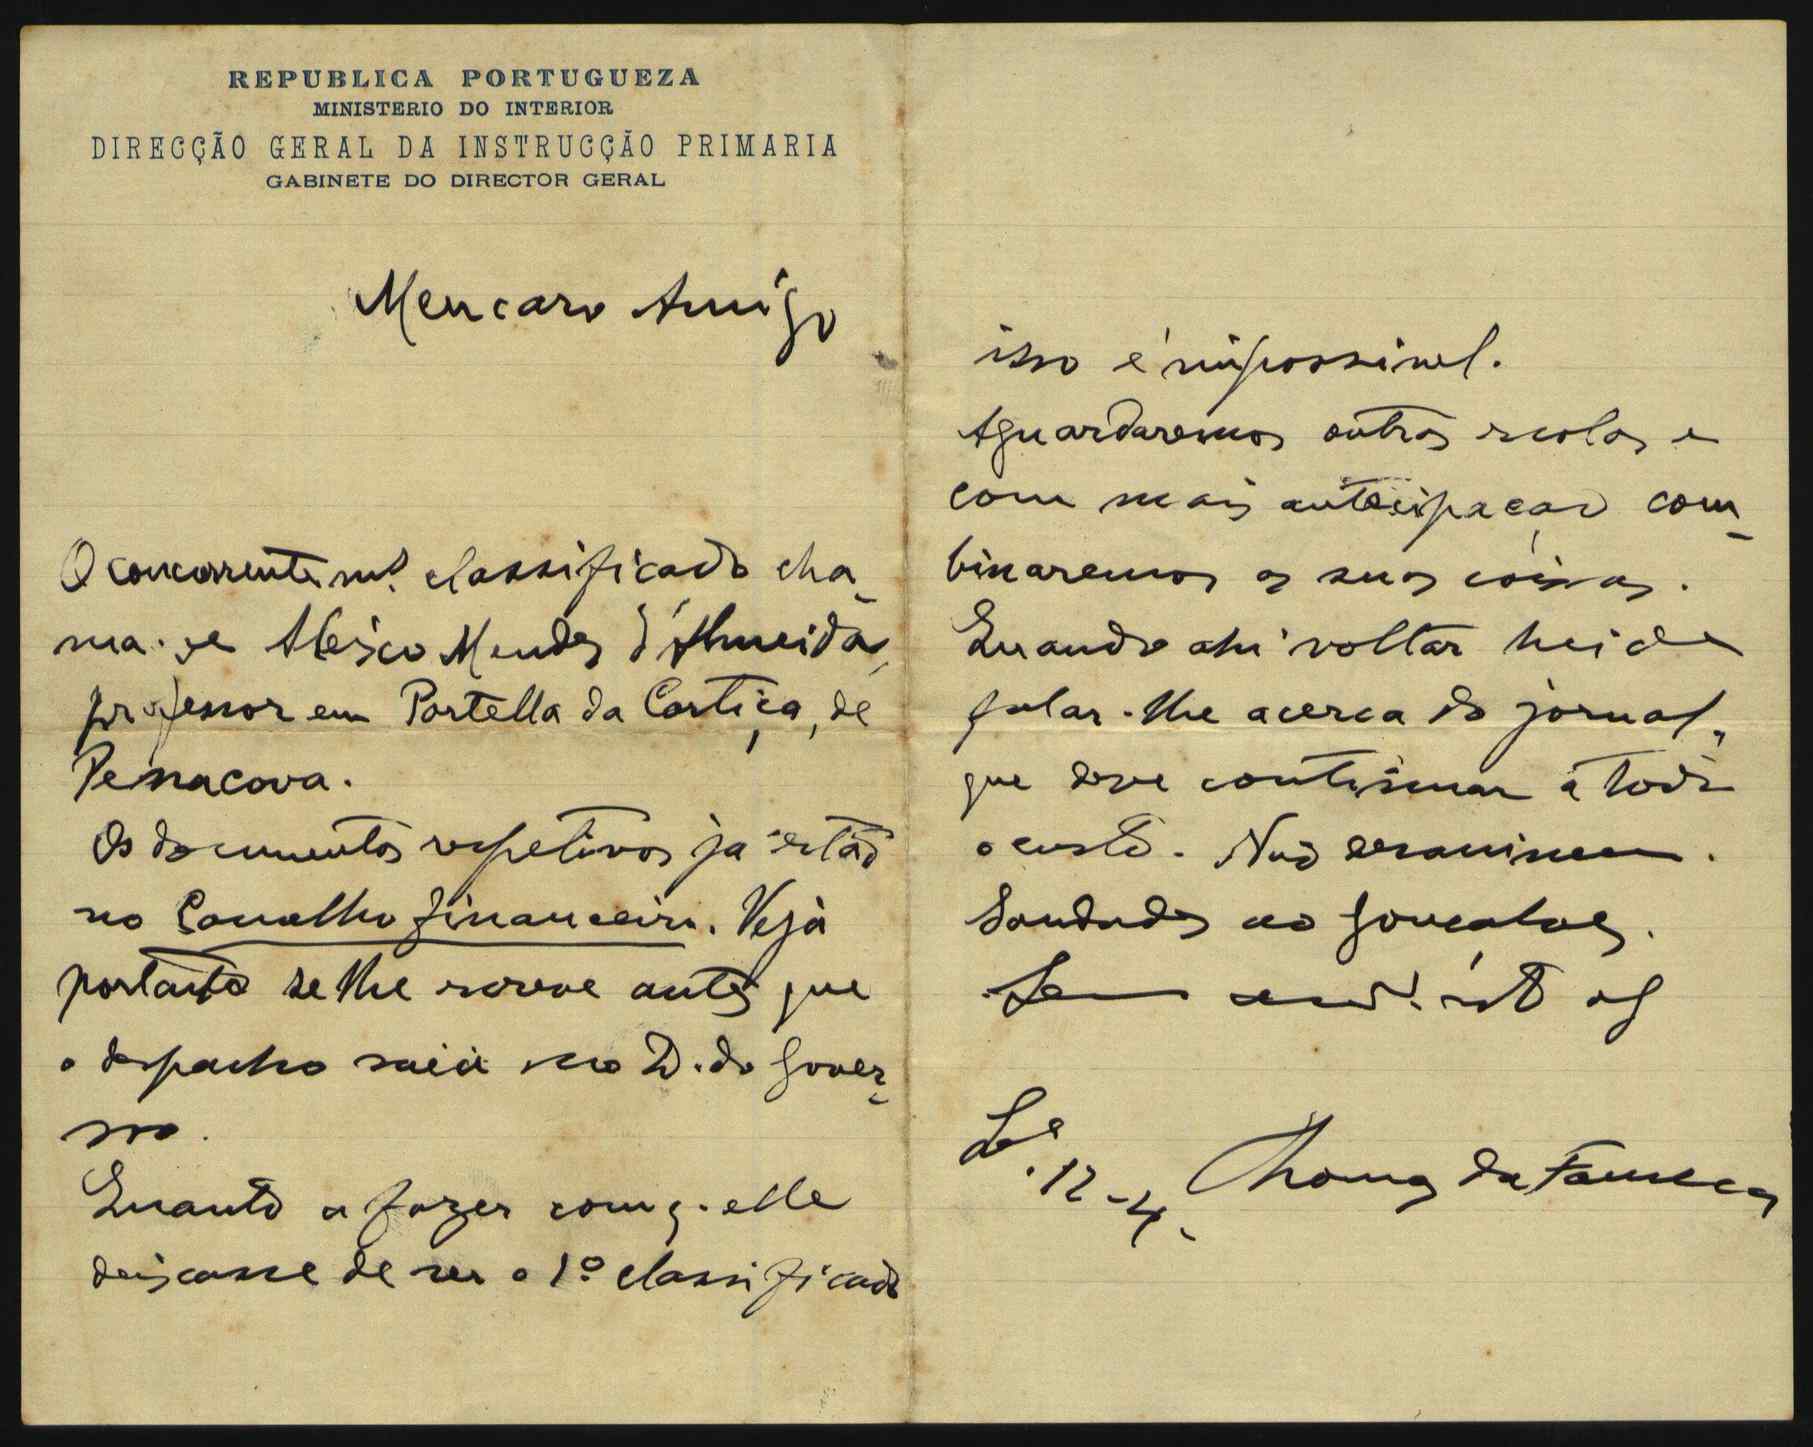 REPUBLICA PORTUGUEZA
MINISTERIO DO INTERIOR
DIRECÇÃO GERAL DA INSTRUCÇÃO PRIMARIA
GABINETE DO DIRECTOR GERAL
Meu caro Amigo
O concorrente classificado cha-
ma-se Mendes d'Almeida,
professor em Portella da Cortiça, de
Penacova.
Os documentos respetivos ja estão
no Conselho financeiro. Veja
portanto se lhe escreve antes que
o despacho saia no D. do Gover-
no.
Quanto a fazer com q. elle
deixasse de ser o 1º classificado
isso é impossivel.
Aguardaremos outras escolas e
com mais antecipação com-
binaremos as suas coisas.
Quando ahi voltar hei de
falar-lhe acerca do jornal,
que deve continuar a todo
o custo. Não desanimem.
Saudades ao Gonçalves.
Seu
Lx.ª 12-4- Thomaz da Fonseca